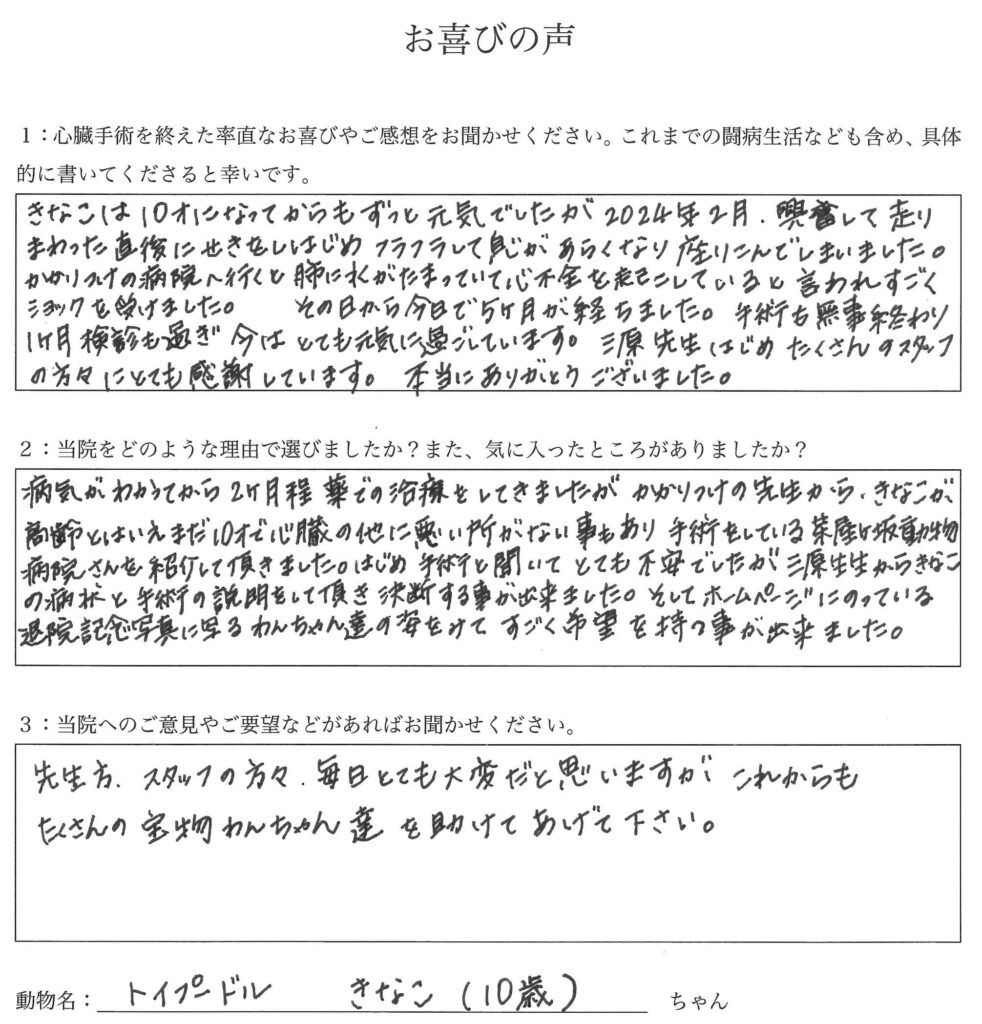 お喜びの声
1：心臓手術を終えた率直なお喜びやご感想をお聞かせください。これまでの闘病生活なども含め、具体
的に書いてくださると幸いです。
きなこは10才になってからもずっと元気でしたが2024年2月、興奮して走り
まわった直後にせきをしはじめフラフラして息があらくなり座りこんでしまいました。
かかりつけの病院へ行くと肺に水がたまっていて心不全を起こしていると言われすごく
ショックを受けました。 その日から今日で5ヶ月が経ちました。手術も無事終わり
1ヶ月検診も過ぎ今はとても元気に過ごしています。三原先生はじめたくさんのスタッフ
の方々にとても感謝しています。本当にありがとうございました。
2：当院をどのような理由で選びましたか？また、気に入ったところがありましたか？
病気がわかってから2ヶ月程薬での治療をしてきましたがかかりつけの先生から、きなこが
高齢とはいえまだ10才で心臓の他に悪い所がない事もあり手術をしている茶屋ヶ坂動物
病院さんを紹介して頂きました。はじめ手術と聞いてとても不安でしたが三原先生からきなこ
の病状と手術の説明をして頂き決断する事が出来ました。そしてホームページにのっている
退院記念写真に写るわんちゃん達の姿をみてすごく希望を持つ事が出来ました。
3：当院へのご意見やご要望などがあればお聞かせください。
先生方、スタッフの方々、毎日とても大変だと思いますがこれからも
たくさんの宝物わんちゃん達を助けてあげて下さい。
動物名： トイプードル きなこ（10歳） ちゃん